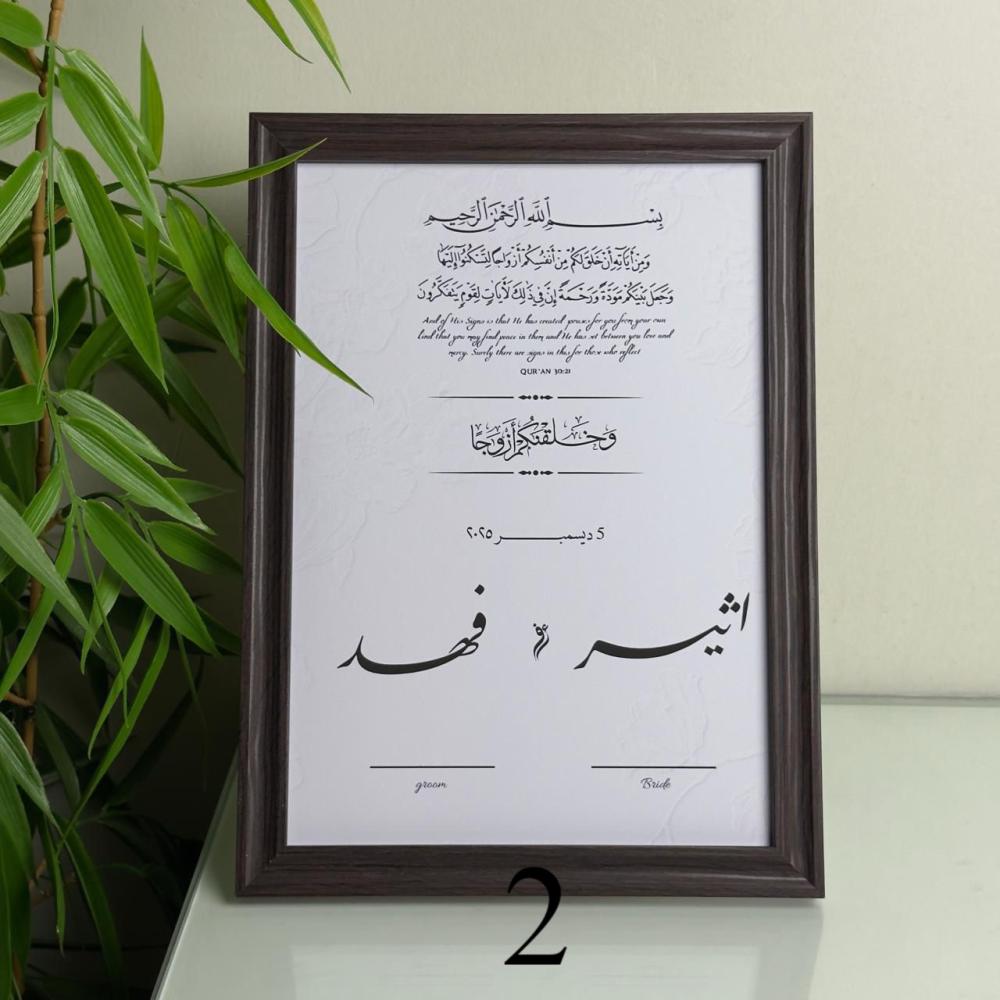 بِسْمِ ٱللَّهِ ٱلرَّحْمَٰنِ ٱلرَّحِيمِ
وَمِنْ أَيَاتِهِ أَنْ خَلَقَ لَكُمْ مِنْ أَنْفُسِكُمْ أَزْوَاجًا لِتَسْكُنُوا إِلَيْهَا
وَجَعَلَ بَيْنَكُمْ مَوَدَّةً وَرَحْمَةً إِنَّ فِي ذَلِكَ لَأَيَاتٍ لِقَوْمٍ يَتَفَكَّرُونَ
And of His Signs is that He has created pouses for you from your own
kind that you may find peace in them and He has set between you love and
mercy. Surely there are signs in this for those who reflect
QUR'AN 30:21
وَخَلَقْنَٰكُمْ أَزْوَٰجًا
5 ديسمبر ٢٠٢٥
اثير و فهد
groom Bride
2